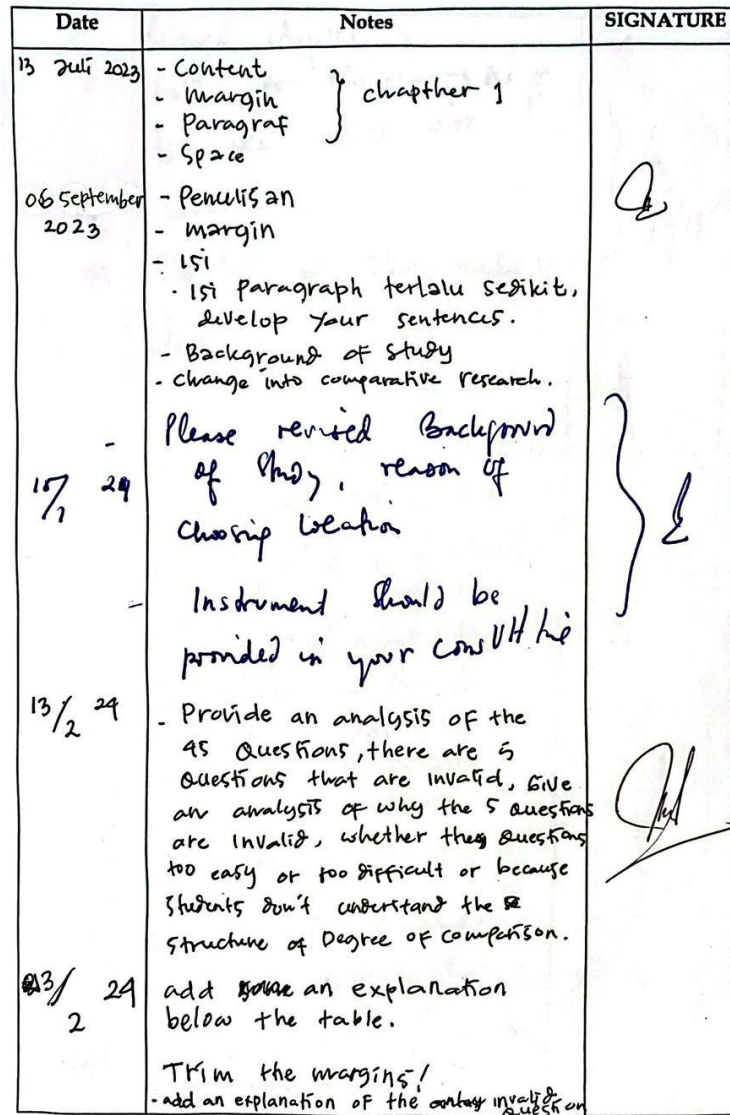 Date Notes SIGNATURE
13 Juli 2023 - Content
- Margin } chapther 1
- Paragraf
- Space
06 September - Penulisan
2023 - margin
- isi
· isi Paragraph terlalu sedikit,
develop your sentences.
- Background of study
- change into comparative research.
- Please revised Background
of Study, reason of
15/1 24
Choosing location
- Instrument should be
provided in your
13/2 24 - Provide an analysis of the
45 Questions, there are 5
Questions that are invalid, Give
an analysis of why the 5 Questions
are invalid, whether the Questions
too easy or too difficult or because
students don't understand the
structure of Degree of comparison.
/2 24 add an explanation
below the table.
Trim the margins!
- add an explanation of the invalid
question